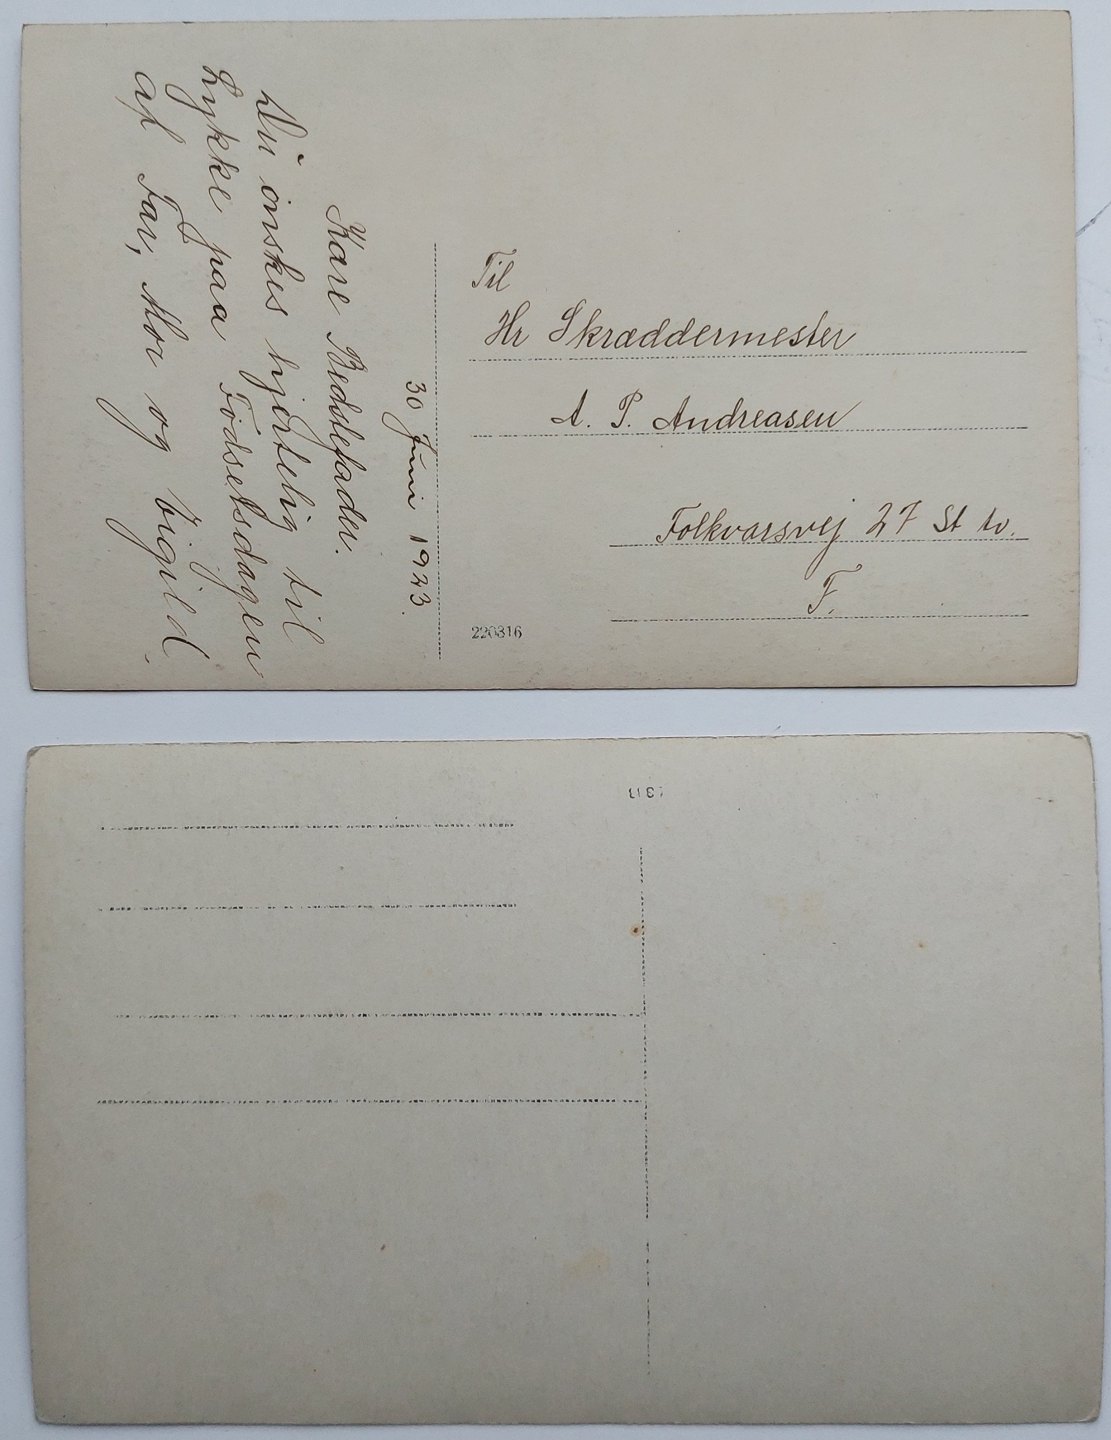 30 Juni 1923.
Kære Bedstefader.
Du ønskes hjertelig til
Lykke paa Fødselsdagen
af Far, Mor og Eigild.
Til
Hr Skræddermester
A. P. Andreasen
Folkvarsvej 27 St tv.
F.
220316